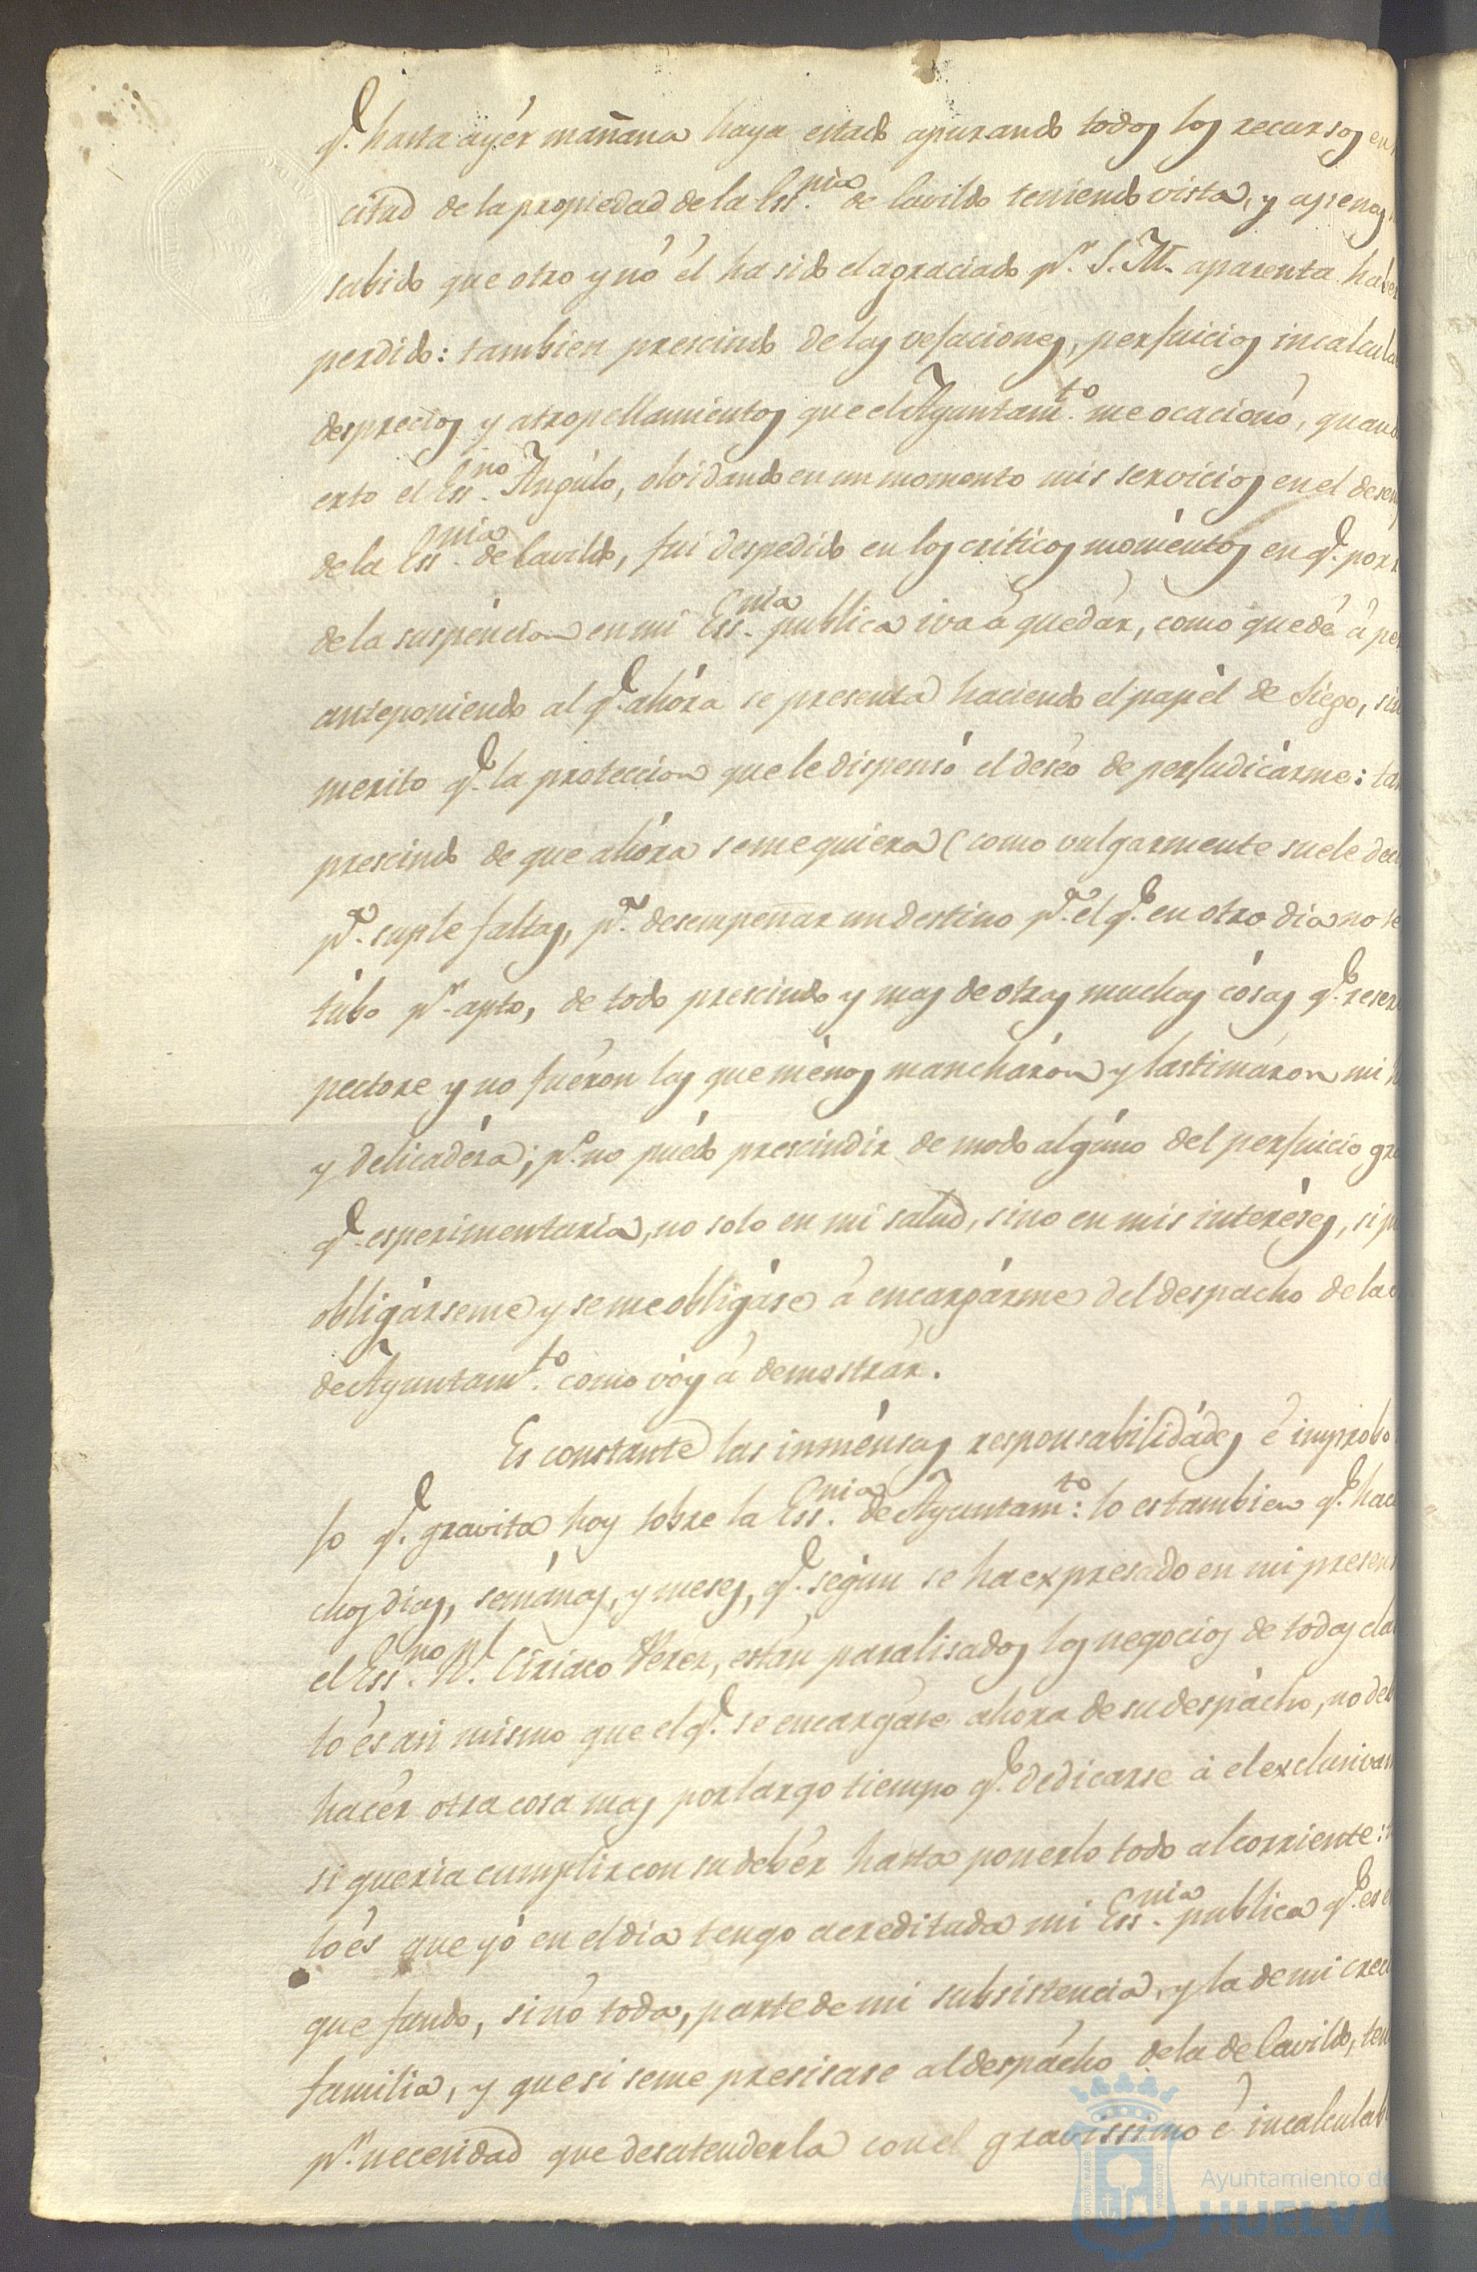 q.e hasta ayér mañana haya estado apurando todos los recursos en
citud de la propiedad de la Ess.nia de Cavildo teniendo vista, y apenas
sabido que otro y nó él ha sido el agraciado p.r S. M. aparenta haber
perdido: tambien prescindo de las vejaciones, perjuicios incalcula
desprecios y atropellamientos que el Ayuntam.to me ocacionó, quand
erto el Ess.no Angúlo, olvidando en un momento mis servicios en el desem
de la Ess.nia de Cavildo, fui despedido en los criticos moméntos en q.e por
de la suspéncion en mi Ess.nia publica iva á quedár, como quedé á per
anteponiendo al q.e ahóra se presenta haciendo el papél de Siégo, sin
merito q.e la proteccion que le dispensó el deséo de perjudicárme: tam
prescindo de que ahóra se me quiera (como vulgarmente suele deci
p.a suple faltas, p.a desempeñar un destino p.a el q.e en otro dia no se
túbo p.r apto, de todo prescindo y mas de otras muchas cósas q.e reser
pectore y no fuéron las que ménos mancháron y lastimáron mi h
y delicadéza; p.o no puédo prescindir de modo algúno del perjuicio gra
q.e esperimentaria, no solo en mi salud, sino en mis interéses, si p
obligárseme y se me obligáse á encargárme del despacho de la
de Ayuntam.to como vóy á demostrár.
Es constante las inménsas responsabilidádes é improbo
jo q.e gravita hoy sobre la Ess.nia de Ayuntam.to: lo es tambien q.e hac
chos dias, semánas, y meses, q.e segùn se ha expresado en mi presen
el Ess.no R.l Ciriaco Perez, están paralisados los negocios de todas cla
lo és asi mismo que el q.e se encargáse ahora de su despácho, no deb
hacér otra cosa mas por largo tiempo q.e dedicarse á el exclusivam
si queria cumplir con su debér hasta ponerlo todo al corriente:
lo és que yó en el dia tengo acreditada mi Ess.nia publica q.e es e
que fundo, sinó toda, parte de mi subsistencia, y la de mi creci
familia, y que si se me presisase al despácho de la de Cavildo, ten
p.r necesidad que desatenderla con el gravissimo é incalculab
Ayuntamiento de
HUELVA